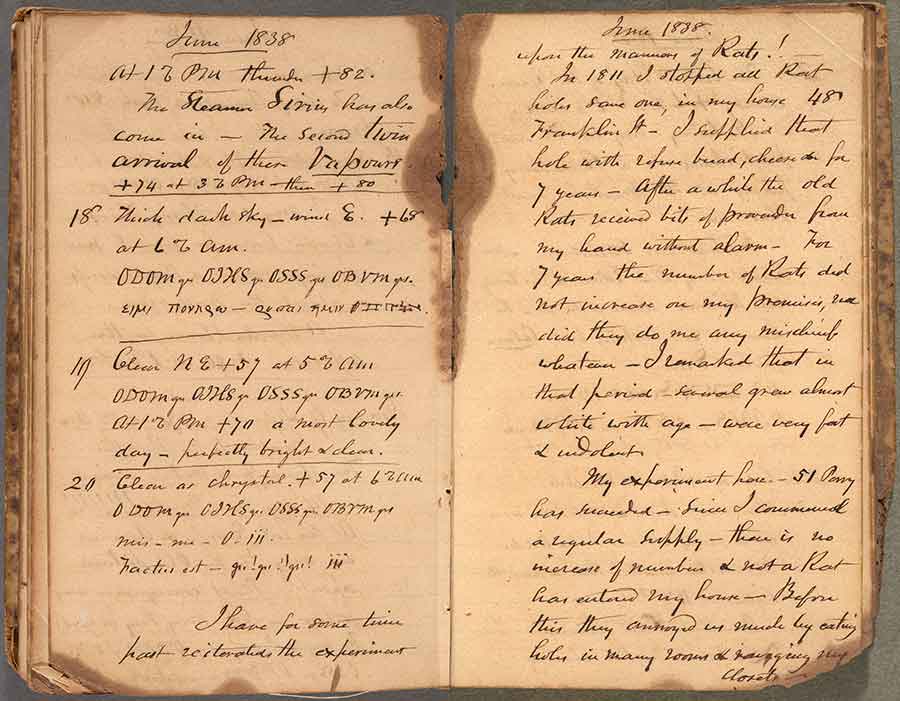 June 1838
At 1 PM thunder +82.
The Steamer Sirius has also
come in — The second twin
arrival of these Vapours.
+74 at 3 PM — then +80
18 Thick dark sky — wind E. +68
at 6 am.
ODOM OIHS OSSS OBVM
ειμι
19 Clear NE +57 at 5 am
ODOM OIHS OSSS OBVM
At 1 PM +70 a most lovely
day — perfectly bright & clear.
20 Clear as chrystal. +57 at 6 am
ODOM OIHS OSSS OBVM
mis — me — O. iii.
Factus est — iii
I have for some time
past reiterated the experiment
June 1838.
upon the manners of Rats! —
In 1811 I stopped all Rat
holes save one, in my house 48
Franklin St — I supplied that
hole with refuse bread, cheese & for
7 years — After a while the old
Rats received bits of provender from
my hand without alarm — For
7 years the number of Rats did
not increase on my premises, nor
did they do me any mischief
whatever — I remarked that in
that period — several grew almost
white with age — were very fat
& indolent.
My experiment here — 51 Perry
has succeeded — Since I commenced
a regular supply — there is no
increase of number & not a Rat
has entered my house — Before
this they annoyed us much by eating
holes in many rooms & ravaging my
closets —